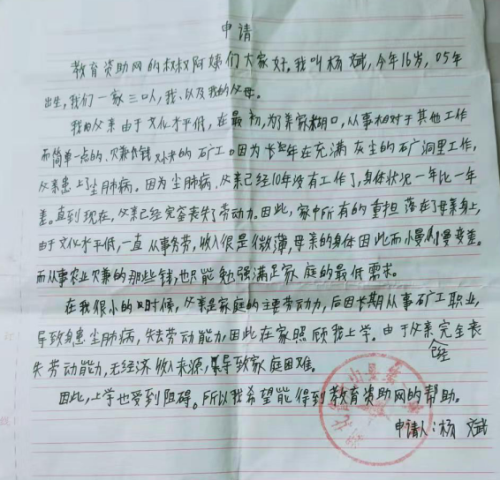 申请
教育资助网的叔叔阿姨们大家好,我叫杨斌,今年16岁,05年
出生,我们一家三口人,我、以及我的父母。
我的父亲由于文化水平低,在最初,为了养家糊口,从事相对于其他工作
而简单一点的、来钱快的矿工。因为长年在充满灰尘的矿洞里工作,
父亲患上了尘肺病。因为尘肺病,父亲已经10年没有工作了,身体状况一年比一年
差。直到现在,父亲已经完全丧失了劳动力。因此,家中所有的重担落在了母亲身上,
由于文化水平低,一直从事务农,收入很是微薄,母亲的身体因此而慢慢变差。
而从事农业来的那些钱,也只能勉强满足家庭的最低需求。
在我很小的时候,父亲是家庭的主要劳动力,后因长期从事矿工职业,
导致身患尘肺病,失去劳动能力,因此在家照顾我上学。由于父亲完全丧
失劳动能力,无经济收入来源,导致家庭困难。
因此,上学也受到阻碍。所以我希望能得到教育资助网的帮助。
申请人:杨斌